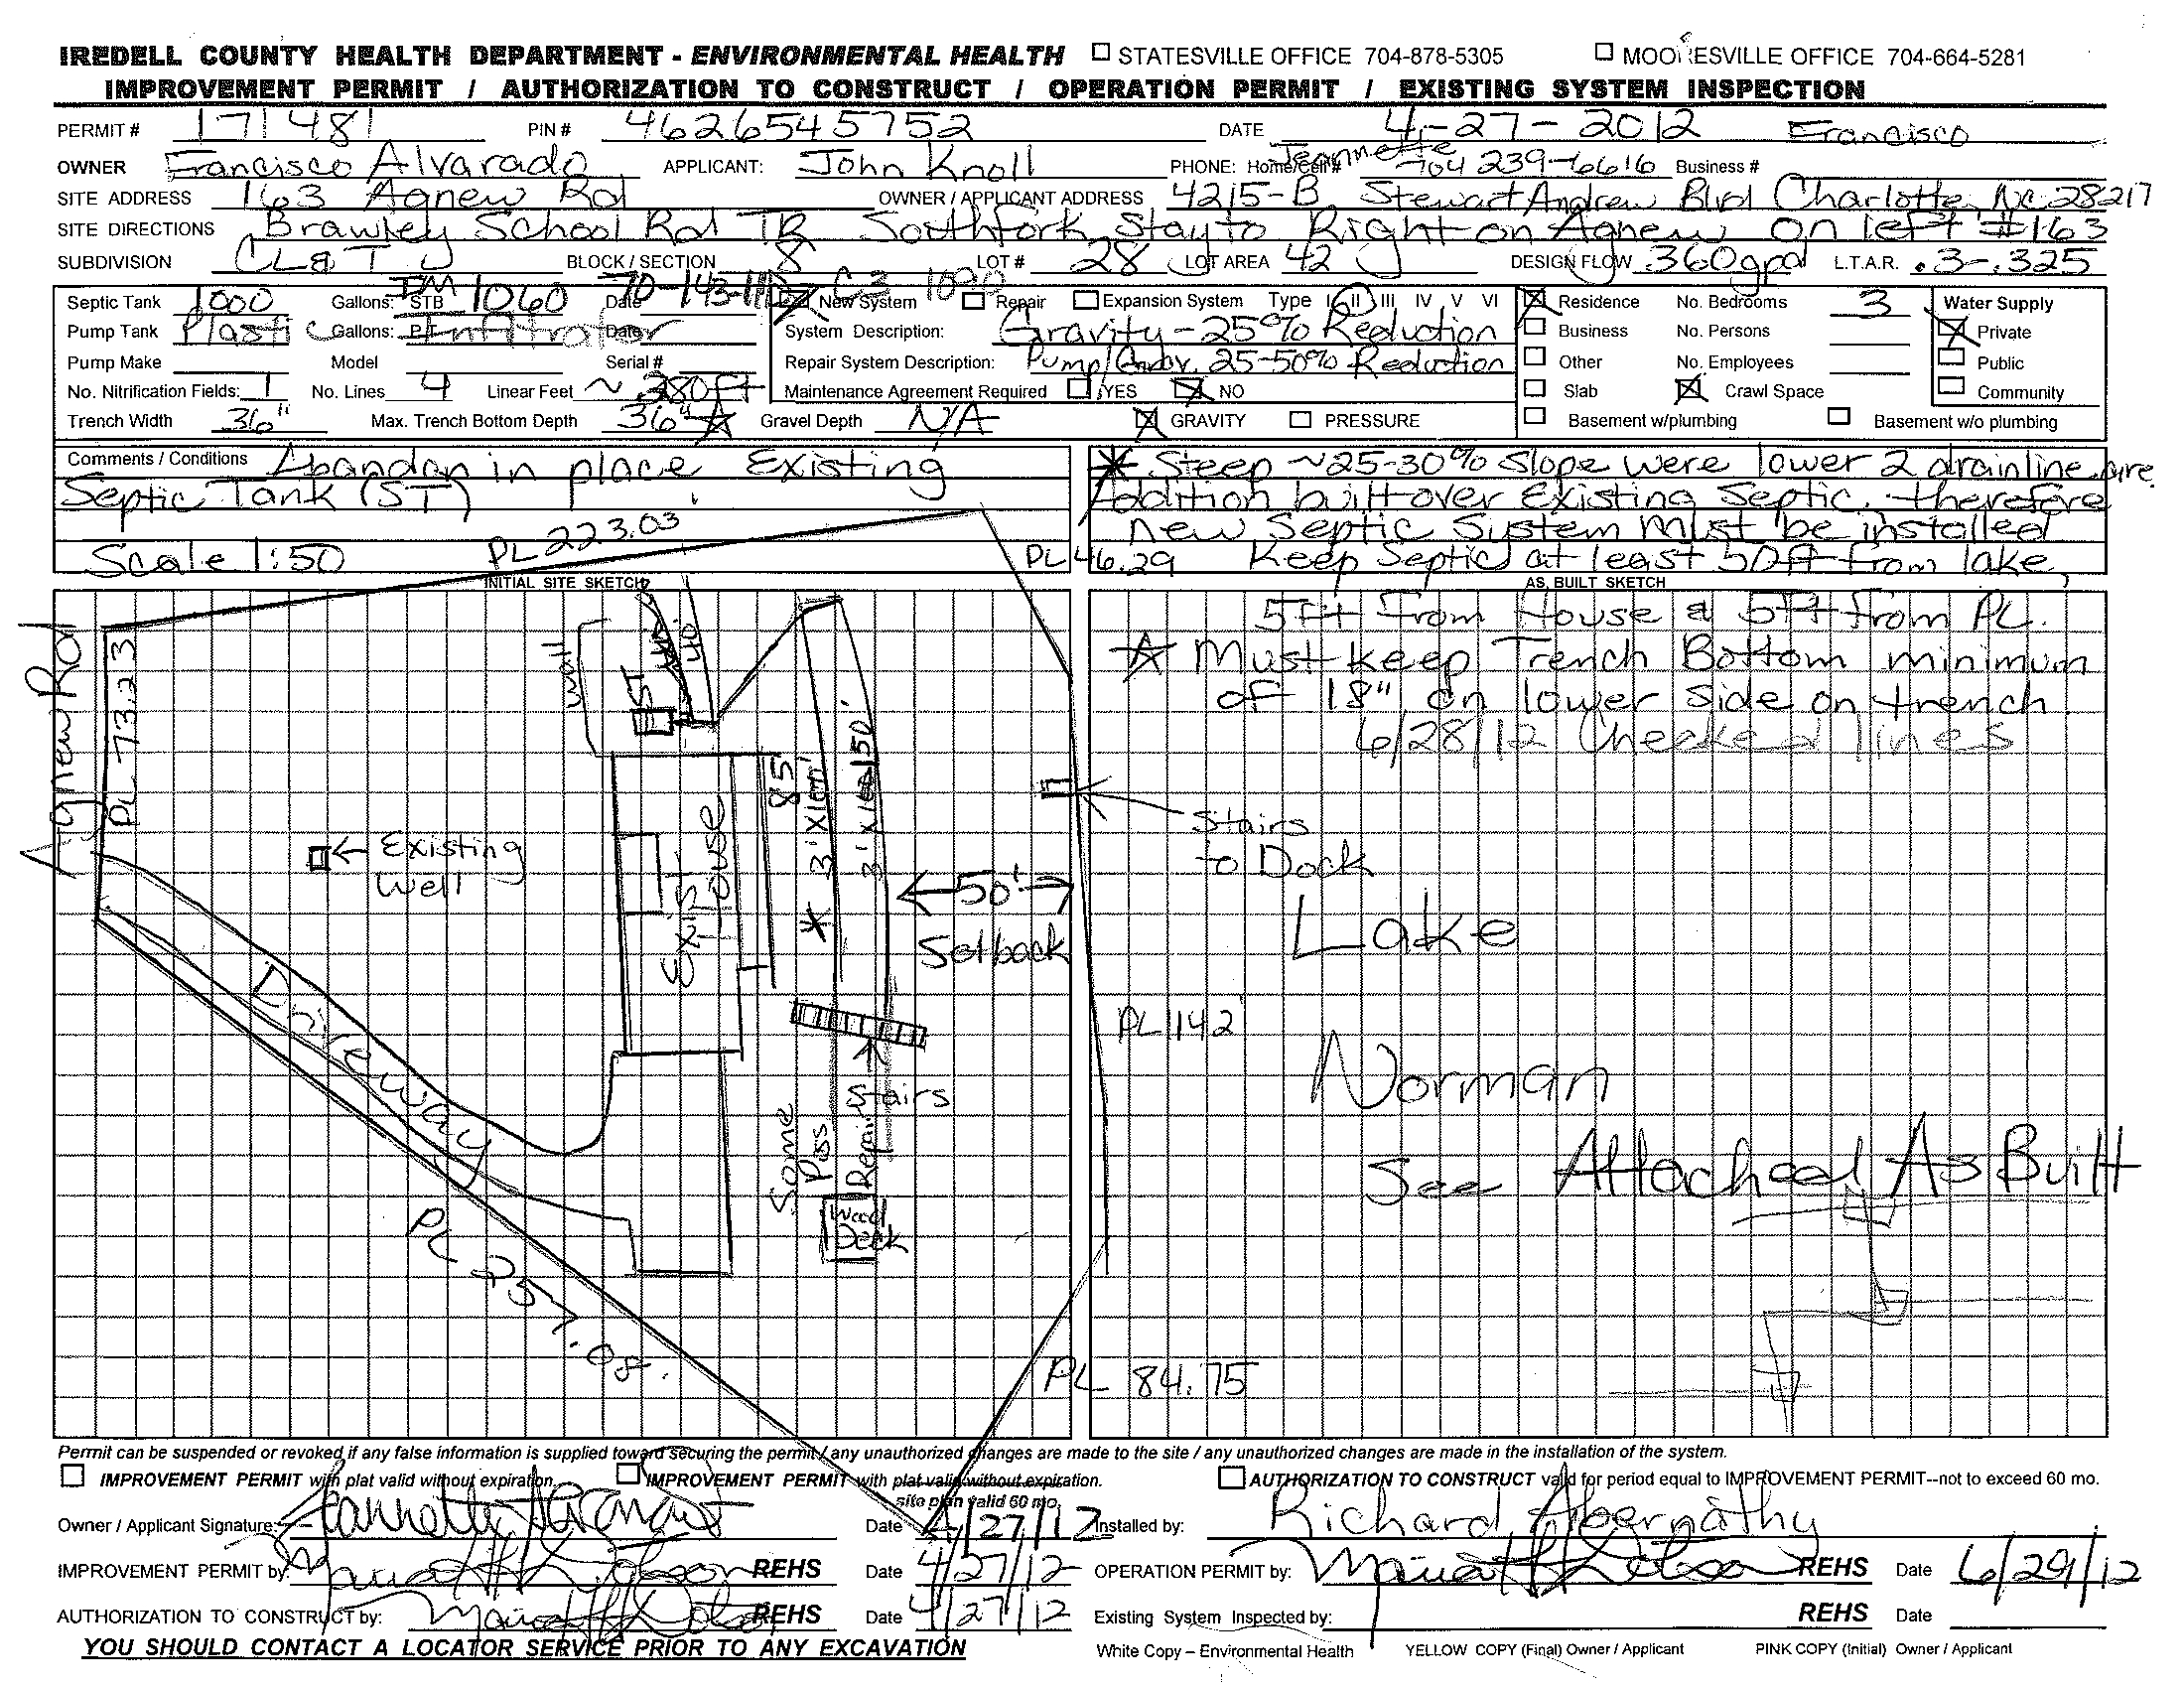 IREDELL COUNTY HEALTH DEPARTMENT - ENVIRONMENTAL HEALTH ☐ STATESVILLE OFFICE 704-878-5305 ☐ MOORESVILLE OFFICE 704-664-5281
IMPROVEMENT PERMIT / AUTHORIZATION TO CONSTRUCT / OPERATION PERMIT / EXISTING SYSTEM INSPECTION
PERMIT # 171481 PIN # 4626545752 DATE 4-27-2012 Francisco
OWNER Francisco Alvarado APPLICANT: John Knoll PHONE: Home/Cell # Jeannette 704 239-6616 Business #
SITE ADDRESS 163 Agnew Rd OWNER / APPLICANT ADDRESS 4215-B Stewart Andrew Blvd Charlotte NC 28217
SITE DIRECTIONS Brawley School Rd TR Southfork Stay to Right on Agnew on left #163
SUBDIVISION BLOCK / SECTION 8 LOT # 28 LOT AREA 42 DESIGN FLOW 360gpd L.T.A.R. .3-.325
Septic Tank 1000 Gallons: STB IM 1060 Date ☒ New System ☐ Repair ☐ Expansion System Type I II III IV V VI ☒ Residence No. Bedrooms 3 Water Supply
Pump Tank Plastic Gallons: P.T. Infiltrator Date System Description: Gravity-25% Reduction ☐ Business No. Persons ☒ Private
Pump Make Model Serial # Repair System Description: Pump/Grav. 25-50% Reduction ☐ Other No. Employees ☐ Public
No. Nitrification Fields: 1 No. Lines 4 Linear Feet ~ 280 FT Maintenance Agreement Required ☐ YES ☒ NO ☐ Slab ☒ Crawl Space ☐ Community
Trench Width 36" Max. Trench Bottom Depth 36" ☆ Gravel Depth N/A ☒ GRAVITY ☐ PRESSURE ☐ Basement w/plumbing ☐ Basement w/o plumbing
Comments / Conditions Abandon in place Existing
Septic Tank (ST)
Scale 1:50
* Steep ~25-30% Slope were lower 2 drainline are
Addition built over Existing Septic, therefore
New Septic System Must be installed
Keep Septic at least 50ft from lake,
INITIAL SITE SKETCH
AS BUILT SKETCH
5ft from House & 5ft from PL.
☆ Must keep Trench Bottom minimum
of 18" on lower side on trench
6/28/12 Checked lines
PL 223.03
PL 46.29
Agnew Rd
PL 73.23
Wall
ST
40
85'
* 3' X
3' X 150'
Existing
Well
Exist
House
50'
Setback
Stairs
to Dock
Lake
Norman
PL 142
Driveway
Stairs
Some
Poss
Repair
Wood
Deck
See Attached As Built
PL 257.08
PL 84.75
Permit can be suspended or revoked if any false information is supplied toward securing the permit / any unauthorized changes are made to the site / any unauthorized changes are made in the installation of the system.
☐ IMPROVEMENT PERMIT with plat valid without expiration. ☐ IMPROVEMENT PERMIT with plat valid without expiration. ☐ AUTHORIZATION TO CONSTRUCT valid for period equal to IMPROVEMENT PERMIT--not to exceed 60 mo.
site plan valid 60 mo.
Owner / Applicant Signature: Date 4/27/12 Installed by: Richard Abernathy
IMPROVEMENT PERMIT by: REHS Date 4/27/12 OPERATION PERMIT by: REHS Date 6/29/12
AUTHORIZATION TO CONSTRUCT by: REHS Date 4/27/12 Existing System Inspected by: REHS Date
YOU SHOULD CONTACT A LOCATOR SERVICE PRIOR TO ANY EXCAVATION White Copy – Environmental Health YELLOW COPY (Final) Owner / Applicant PINK COPY (Initial) Owner / Applicant